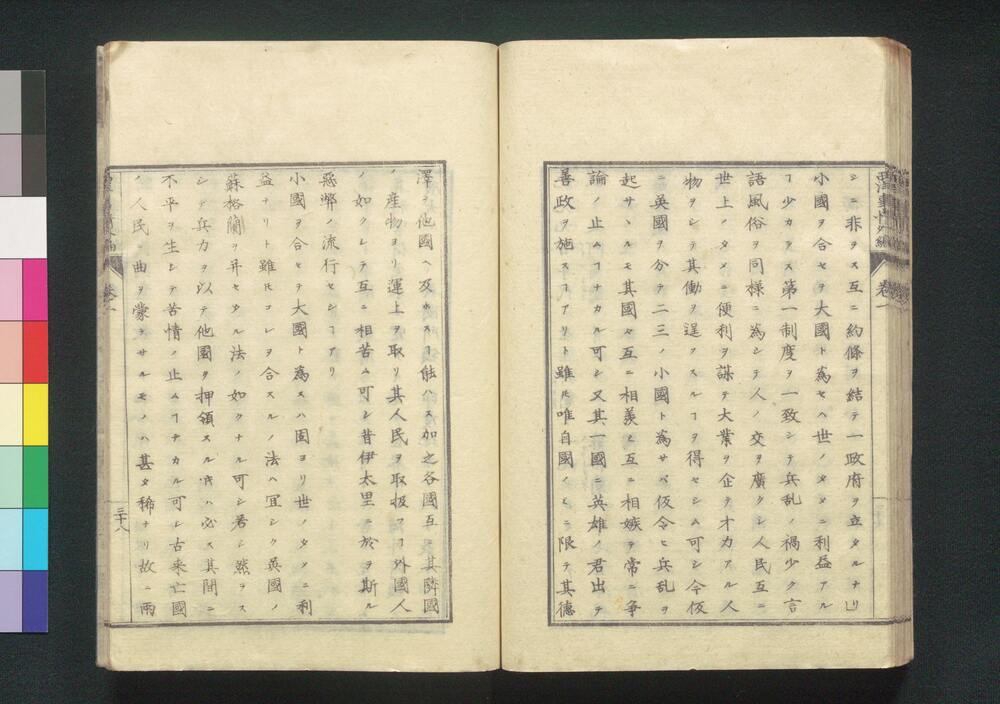 シニ非ヲス互ニ約條ヲ結テ一政府ヲ立タルナリ」
小國ヲ合セヲ大國ト為セハ世ノタメニ利益アル
ヿ少カラス第一制度ヲ一致シテ兵乱ノ禍少ク言
語風俗ヲ同様ニ為シテ人ノ交ヲ廣クシ人民互ニ
世上ノタメニ便利ヲ謀テ大業ヲ企テ才力アル人
物ヲシテ其働ヲ逞フスルヿヲ得セシム可シ今仮
ニ英國ヲ分テ二三ノ小國ト為サバ仮令ヒ兵乱ヲ
起サヽルモ其國々互ニ相羨ミ互ニ相嫉テ常ニ争
論ノ止ムヿナカル可シ又其一國ニ英雄ノ君出テ
善政ヲ施スヿアリト雖𪜈唯自國ノミニ限テ其德
澤ヲ他國ヘ及ホスヿ能ハス加之各國互ニ其隣國
ノ産物ヨリ運上ヲ取リ其人民ヲ取扱フヿ外國人
ノ如クシテ互ニ相苦ム可シ昔伊太里ニ於ヲ斯ル
惡弊ノ流行セシヿアリ
小國ヲ合セテ大國ト為スハ固ヨリ世ノタメニ利
益ナリト雖𪜈コレヲ合スルノ法ハ冝シク英國ノ
蘇格蘭ヲ并セタル法ノ如クナル可シ若シ然ラス
シテ兵力ヲ以テ他國ヲ押領スル𪜈ハ必ス其間ニ
不平ヲ生シテ苦情ノ止ムヿナカル可シ古来亡國
ノ人民ニ曲ヲ蒙ラサルモノハ甚タ稀ナリ故ニ兩
卷一
三十八